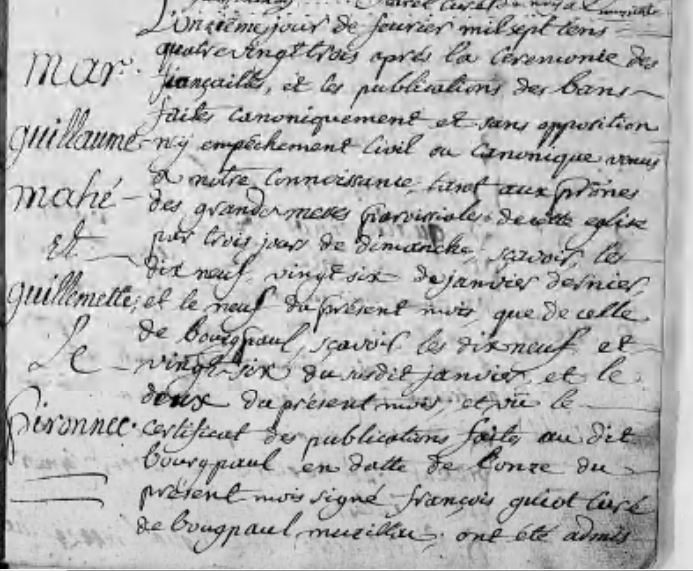 L'onzième jour de feuvrier mil sept cens
quatre vingt trois après la Ceremonie des
fiançailles, et les publications des bans
faites canoniquement et sans opposition
n'y empêchement Civil ou Canonique venus
a notre Connoissance, tant aux prônes
des grandes messes paroissiales de cette eglise
par trois jours de dimanche, sçavoir, les
dix neuf, vingt six de janvier dernier,
et le neuf du présent mois, que de celle
de bourgpaul, sçavoir les dix neuf et
vingt-six du susdit janvier, et le
deux du présent mois, et vû le
certificat des publications faites au dit
bourgpaul en datte de l'onze du
présent mois signé françois guiot curé
de bougpaul muzillac, ont été admis
mar.
guillaume
mahé
Et
guillemette
Le
pironnec.